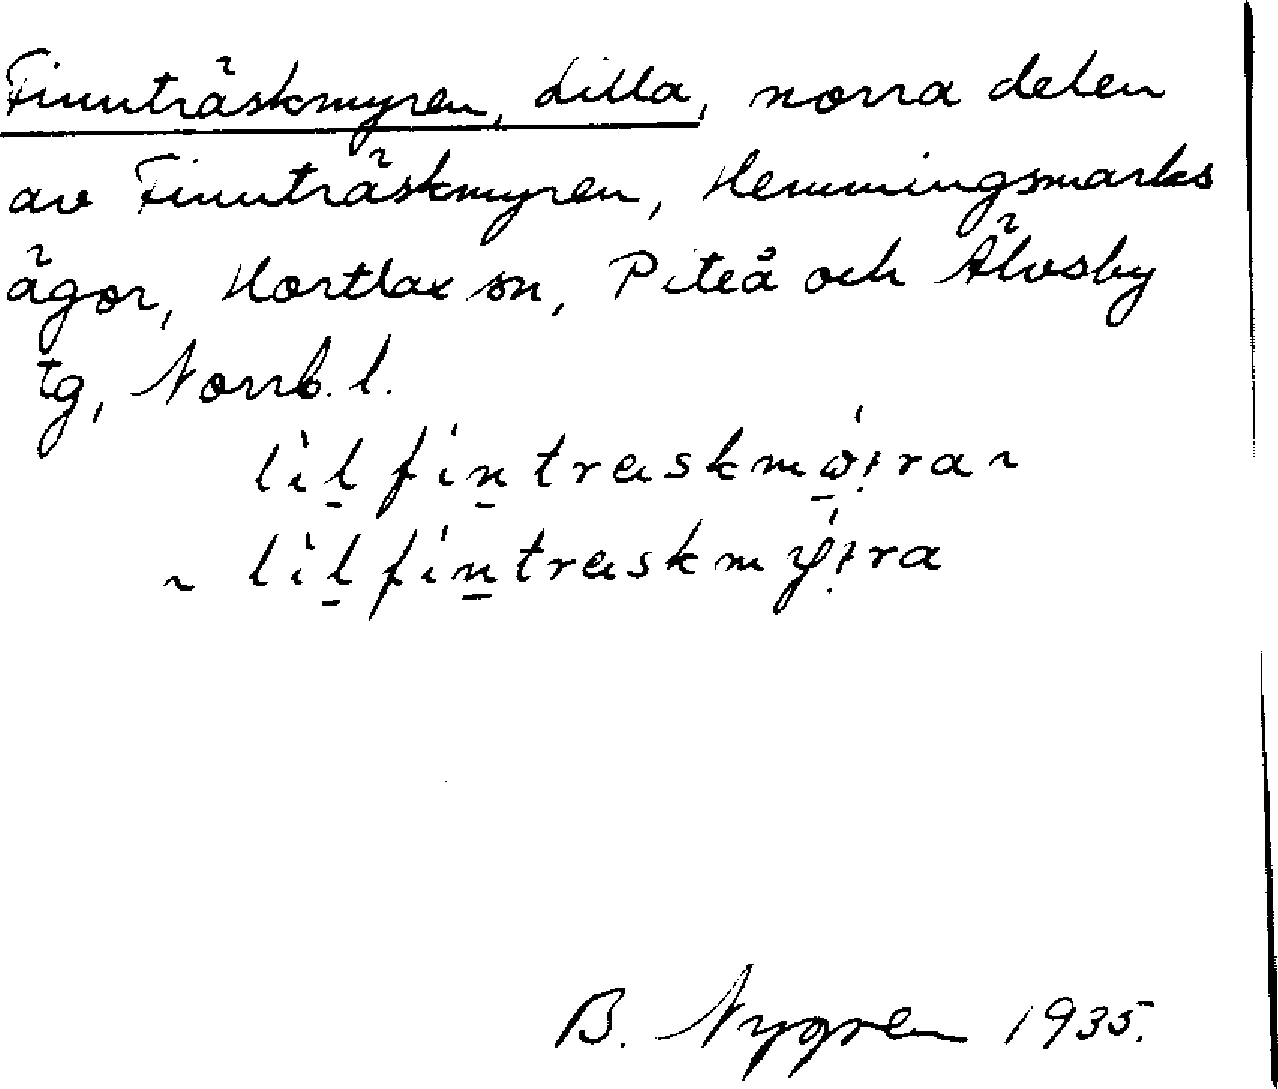 Finnträskmyren, Lilla, norra delen
av Finnträskmyren, Hemmingsmarks
ägor, Hortlax sn, Piteå och Älvsby
tg, Norrb. l.
lìl̠ fín̠træskmώ̠꞉ra ~
~ lìl̠ fín̠træskmý꞉ra
B. Nygren 1935.